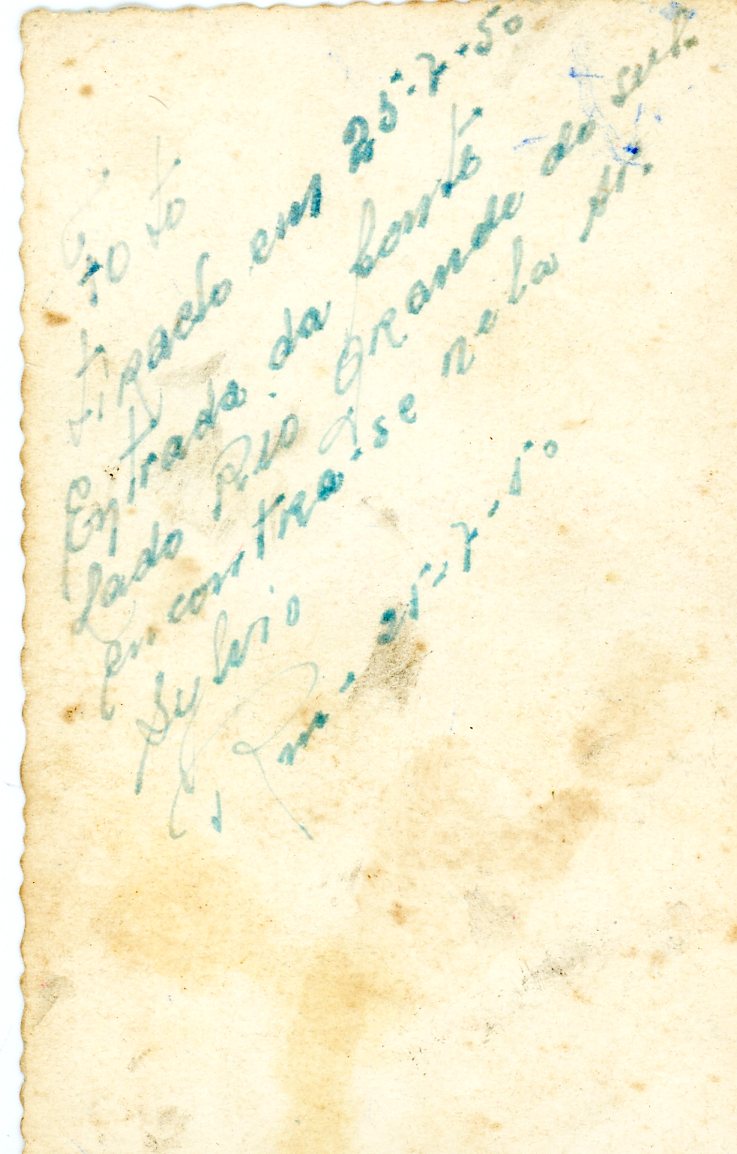 Foto
tirado em 25-7-50
Entrada da Ponte
Lado Rio Grande do sul.
encontra-se nela sr.
Sylvio
Rm. 25-7-50